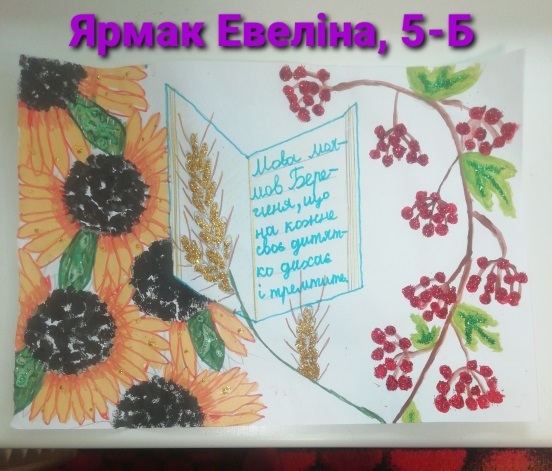 Ярмак Евеліна, 5-Б
Мова моя-
мов Бере-
гиня, що
на кожне
своє дитят-
ко дихає
і тремтить